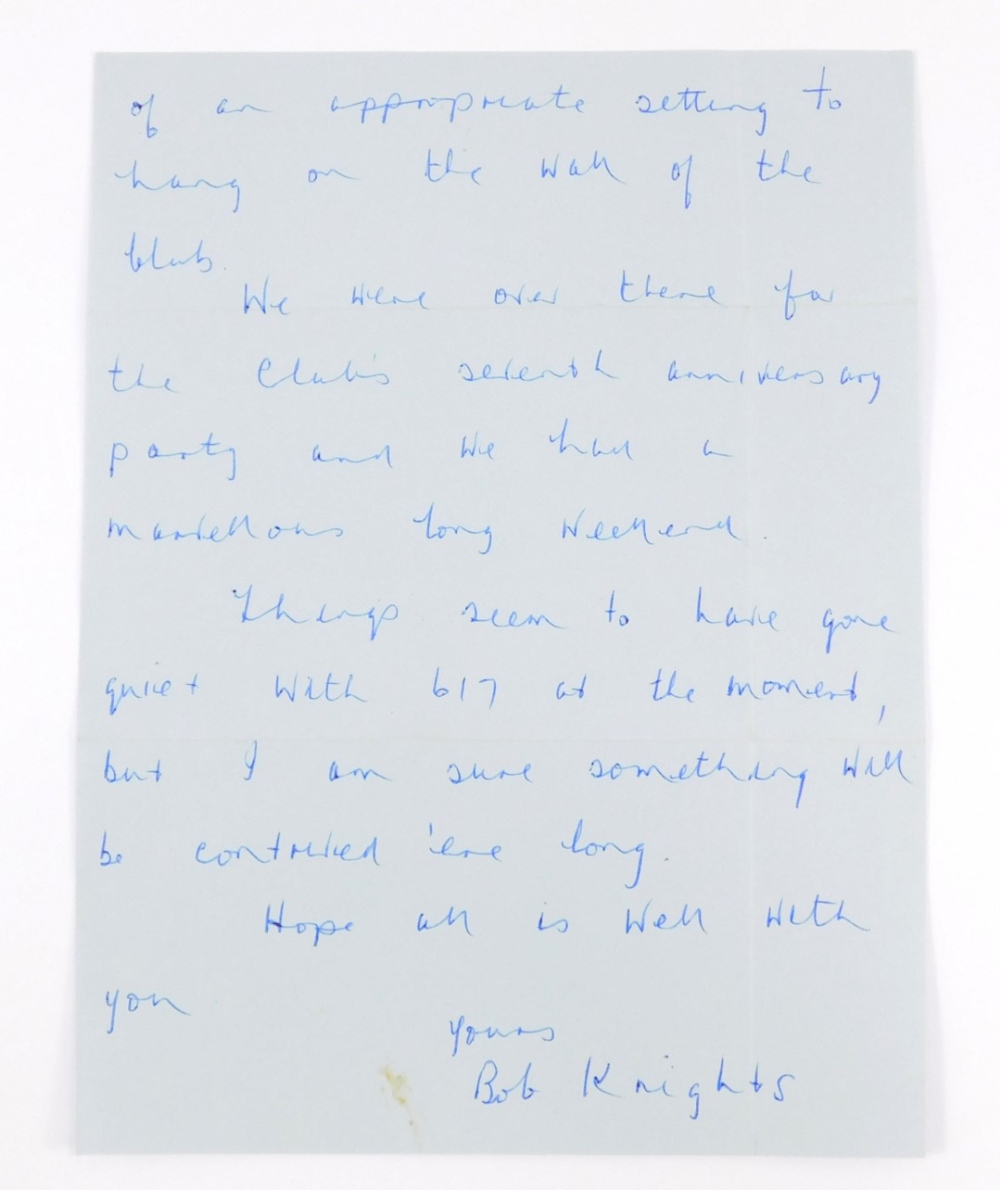 of an appropriate setting to
hang on the wall of the
club.
We were over there for
the Club's seventh anniversary
party and we had a
marvellous long weekend.
Things seem to have gone
quiet with 617 at the moment,
but I am sure something will
be contrived 'ere long.
Hope all is well with
you
Yours
Bob Knights